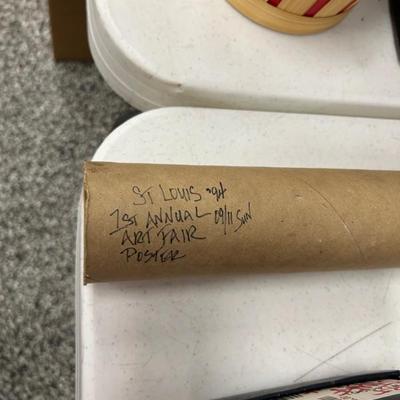 ST LOUIS '94
1ST ANNUAL 09/11 SUN
ART FAIR
POSTER